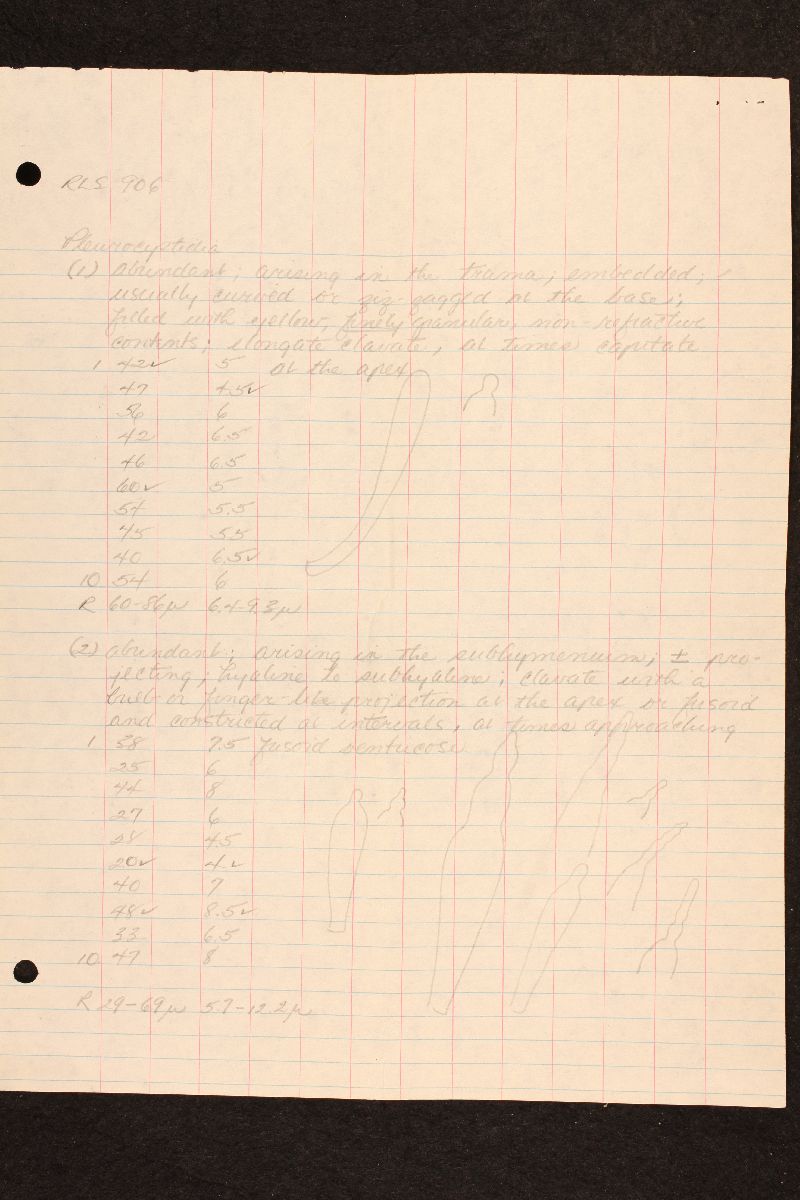 RLS 906
Pleurocystidia
(1) abundant; arising in the trama; embedded;
usually curved or zig-zagged at the base;
filled with yellow, finely granular, non-refractive
contents; elongate clavate, at times capitate
1 42✓ 5 at the apex
47 4.5✓
56 6
42 6.5
46 6.5
60✓ 5
54 5.5
45 5.5
40 6.5✓
10 54 6
R 60-86µ 6.4-9.3µ
(2) abundant; arising in the subhymenium; ± pro-
jecting; hyaline to subhyaline; clavate with a
bulb or finger-like projection at the apex or fusoid
and constructed at intervals, at times approaching
1 38 7.5 fusoid ventricose
25 6
44 8
27 6
28 4.5
20✓ 4✓
40 7
48✓ 8.5✓
33 6.5
10 47 8
R 29-69µ 5.7-12.2µ